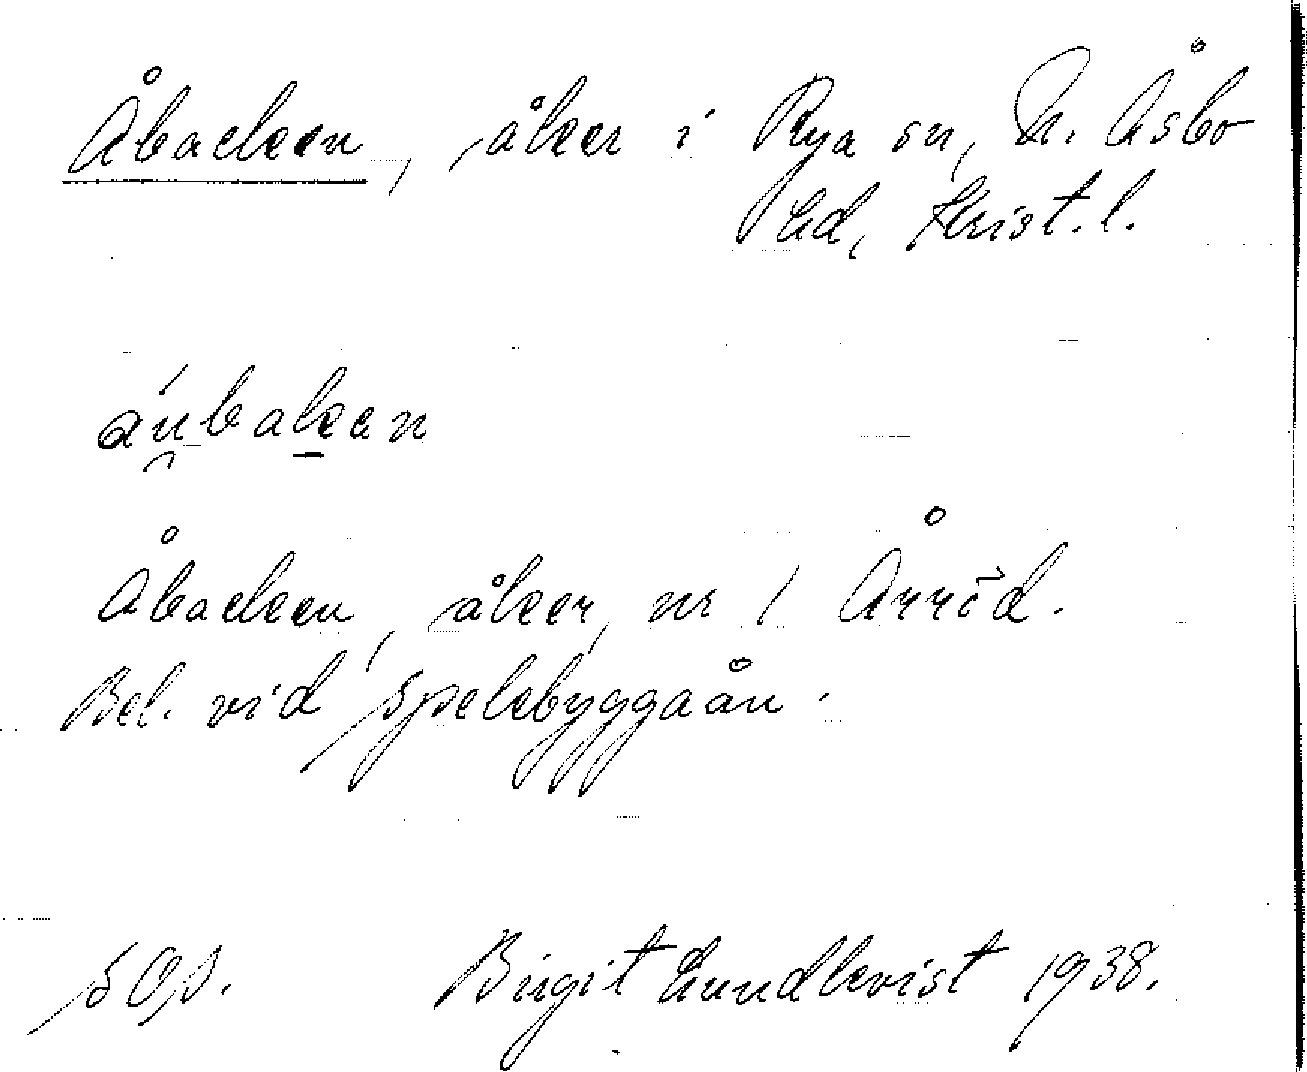 Åbacken, åker i Rya sn, N. Åsbo
hd, Krist. l.
áu̯bak̠an
Åbacken, åker, nr 1 Årröd.
Bel. vid Spelebyggaån.
Birgit Lundkvist 1938.